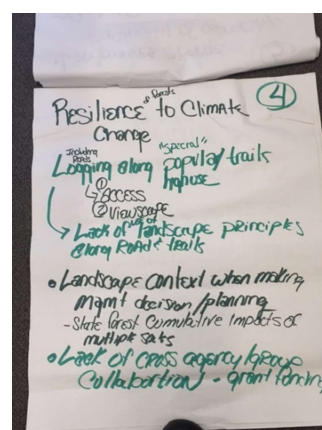 Resilience of forests to Climate ④
Change
Logging along "special" popular trails
Including Roads
highuse
① Access
② Viewscape
Lack of use of landscape principles
along Road & trails
• Landscape context when making
mgmt decision/planning
- State forest Cumulative Impacts of
multiple
• Lack of cross agency/group
Collabortion - grant funding